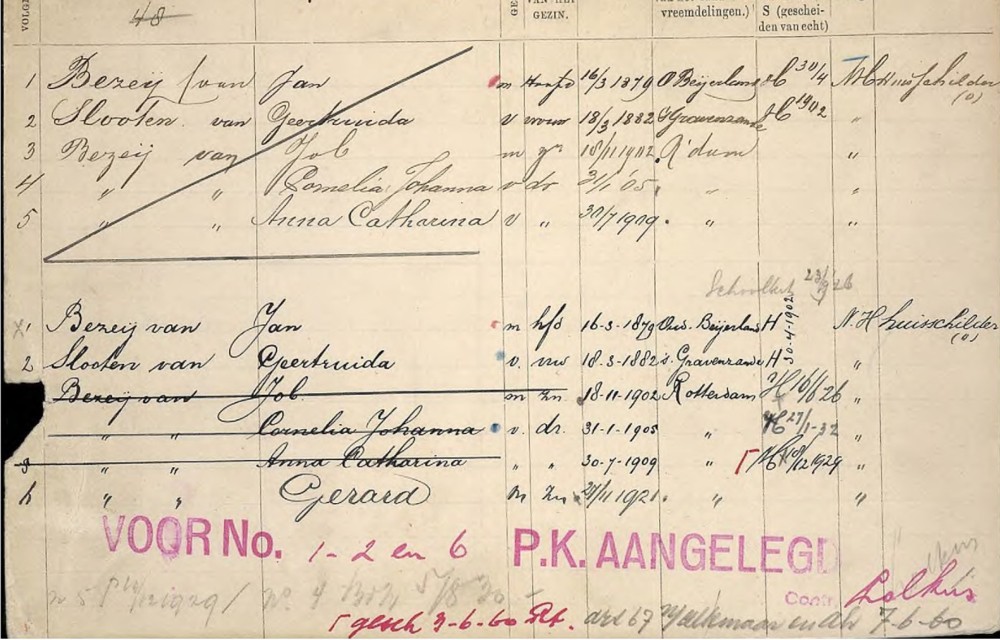 VOLG
48
GE
VAN HET GEZIN.
vreemdelingen.)
S (geschei-
den van echt)
1 Bezeij (van Jan m Hoofd 16/3 1879 O Beijerland H 30/4 NH Huisschilder
(o)
2 Slooten van Geertruida v vrouw 18/3 1882 'sGravenzande H 1902 "
3 Bezeij van Job m zn 18/11 1902. R'dam "
4 " " Cornelia Johanna v dr 31/1 '05. " "
5 " " Anna Catharina v " 30/7 1909. " "
23/9 '26
1 Bezeij van Jan m hfd 16-3-1879 Oud. Beijerland H 30-4-1902 N.H huisschilder
(o)
2 Slooten van Geertruida v. vrw 18-3-1882 's Gravenzande H "
Bezeij van Job m zn 18-11-1902 Rotterdam H 16/6 26 "
" " Cornelia Johanna v. dr. 31-1-1905 " H 27/1-32 "
" " Anna Catharina " " 30-7-1909 " H 10/12 1929 "
" " Gerard m zn 21/11 1921. " "
VOOR No. 1-2 en 6 P.K. AANGELEGD
Contr.
gesch 3-6-60 art 67 7-6-60